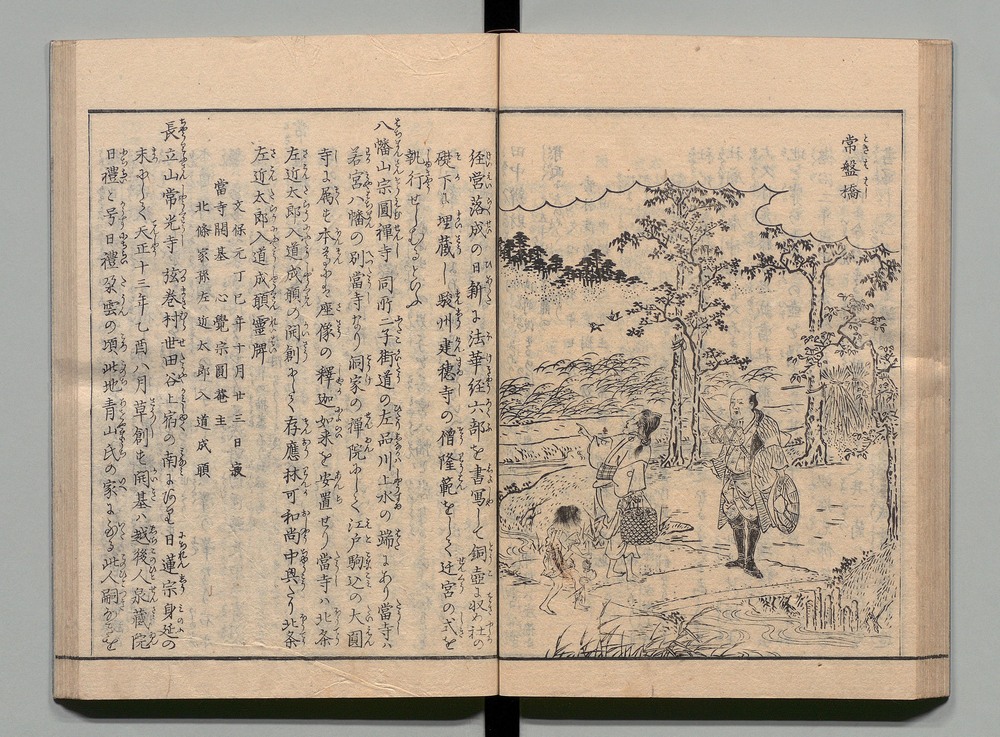 常盤橋
経営落成の日新に法華経六部を書写して銅壺に収め社の
礎下に埋蔵し駿州建穂寺の僧隆範をして迁宮の式を
執行せしむるといふ
八幡山宗圓禅寺 同所二子街道の左品川上水の端にあり當寺ハ
若宮八幡の別當寺なり洞家の禅院にして江戸駒込の大圓
寺に属も本尊は座像の釋迦如来を安置せり當寺ハ北条
左近太郎入道成頓の開創にして存應林可和尚中興たり北条
左近太郎入道成頓霊牌
文保元丁巳年十月廿三日
當寺開基 心覺宗圓菴主
北條家孫左近太郎入道成頓
長立山常光寺 弦巻村世田谷上宿の南にあり日蓮宗身延の
末にして天正十三年乙酉八月草創も開基ハ越後人泉藏院
日禮と号日禮發雲の頃此地青山氏の家による此人嗣なきを